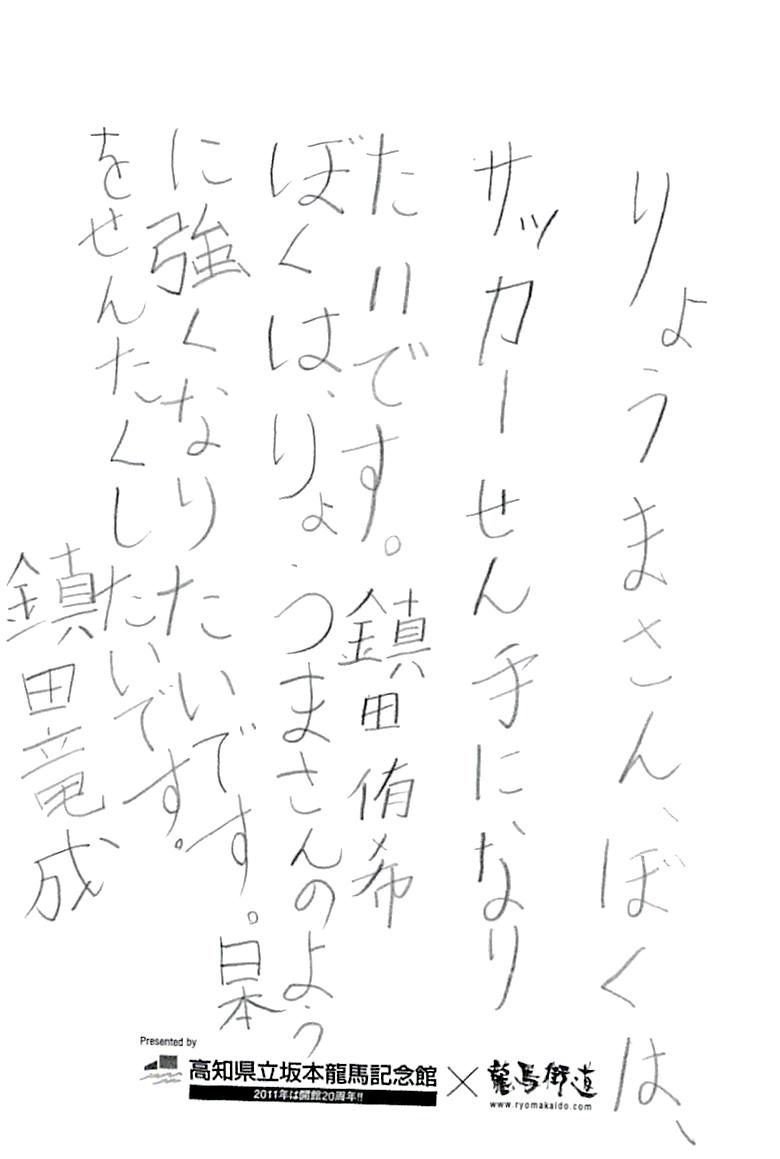 りょうまさん、ぼくは、
サッカーせん手になり
たいです。鎮田侑希
ぼくは、りょうまさんのよう
に強くなりたいです。日本
をせんたくしたいです。
鎮田竜成
Presented by
高知県立坂本龍馬記念館×龍馬街道
2011年は開館20周年!!
www.ryomakaido.com